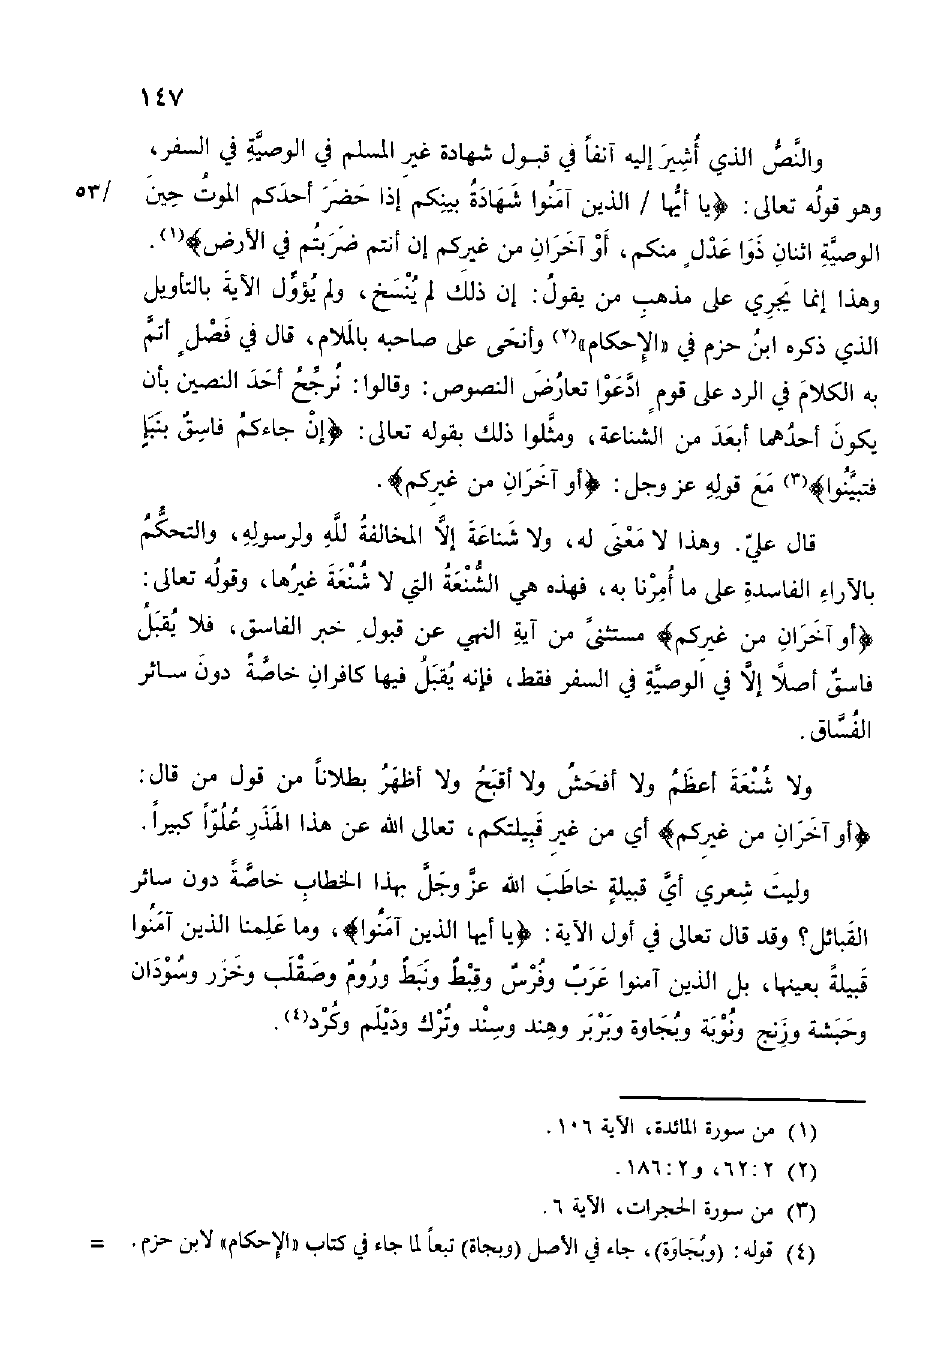 ١٤٧
والنَّصُّ الذي أُشِيرَ إليه آنفاً في قبول شهادة غيرِ المسلم في الوصيَّةِ في السفر،
وهو قولُه تعالى: ﴿يا أيُّها / الذين آمَنُوا شَهَادَةُ بينِكم إذا حَضَرَ أحدَكم الموتُ حِينَ /٥٣
الوصيَّةِ اثنانِ ذَوَا عَدْلٍ منكم، أَوْ آخَرَانِ من غيرِكم إن أنتم ضَرَبتُم في الأرض﴾(١).
وهذا إنما يَجرِي على مذهبِ من يقولُ: إن ذلك لم يُنْسَخ، ولم يُؤوَّل الآيةَ بالتأويل
الذي ذكره ابنُ حزم في «الإِحكام»(٢) وأنحَى على صاحبه بالمَلام، قال في فَصْلٍ أتمَّ
به الكلامَ في الرد على قومٍ ادَّعَوْا تعارُضَ النصوص: وقالوا: نُرجِّحُ أحَدَ النصين بأن
يكونَ أحدُهما أبعَدَ من الشناعة، ومثَّلوا ذلك بقوله تعالى: ﴿إنْ جاءكمُ فاسِقٌ بنَبَإٍ
فتبيَّنُوا﴾(٣) مَعَ قولِهِ عز وجل: ﴿أو آخَرَانِ من غيرِكم﴾.
قال عليّ. وهذا لا مَعْنَى له، ولا شَناعَةَ إلَّا المخالفةُ للَّهِ ولرسولِهِ، والتحكُّمُ
بالآراءِ الفاسدةِ على ما أُمِرْنا به، فهذه هي الشُّنْعَةُ التي لا شُنْعَةَ غيرُها، وقولُه تعالى:
﴿أو آخَرَانِ من غيرِكم﴾ مستثنىً من آيةِ النهي عن قبولِ خبر الفاسق، فلا يُقبَلُ
فاسقٌ أصلًا إلَّا في الوصيَّةِ في السفر فقط، فإنه يُقبَلُ فيها كافرانِ خاصَّةً دونَ سائر
الفُسَّاق.
ولا شُنْعَةَ أعظَمُ ولا أفحَشُ ولا أقبَحُ ولا أظهَرُ بطلاناً من قول من قال:
﴿أو آخَرَانِ من غيرِكم﴾ أي من غيرِ قَبِيلتكم، تعالى الله عن هذا الهَذَرِ عُلُوّاً كبيراً.
وليتَ شِعري أيَّ قبيلةٍ خاطَبَ الله عزَّ وجَلَّ بهذا الخطابِ خاصَّةً دون سائر
القبائل؟ وقد قال تعالى في أول الآية: ﴿يا أيها الذين آمَنُوا﴾، وما عَلِمنا الذين آمَنُوا
قَبيلةً بعينِها، بل الذين آمنوا عَرَبٌ وفُرْسٌ وقِبْطٌ ونَبَطٌ ورُومٌ وصَقْلَب وخَزَر وسُوْدَان
وحَبَشة وزِنج ونُوْبَة وبُجَاوة وبَرْبَر وهِند وسِنْد وتُرْك ودَيْلَم وكُرْد(٤).
(١) من سورة المائدة، الآية ١٠٦.
(٢) ٢:٦٢، و٢:١٨٦.
(٣) من سورة الحجرات، الآية ٦.
(٤) قوله: (وبُجَاوَة)، جاء في الأصل (وبجاة) تبعاً لما جاء في كتاب «الإِحكام» لابن حزم. =